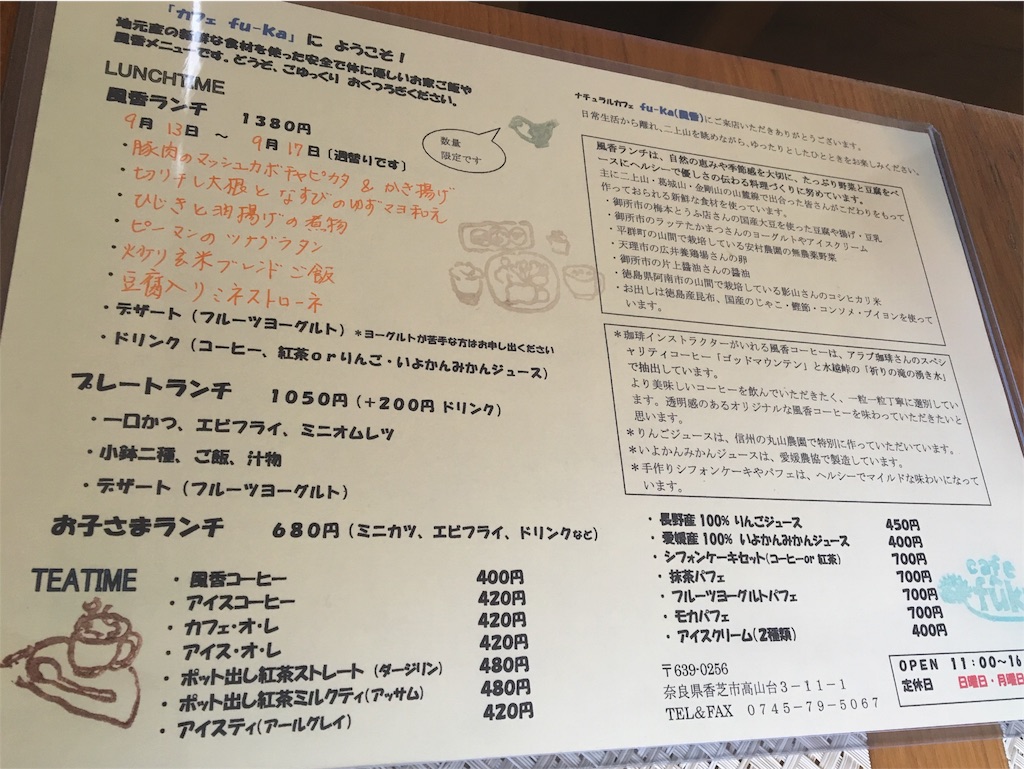 「カフェ fu-ka」に ようこそ！
地元産の新鮮な食材を使った安全で体に優しいお家ご飯や
風香メニューです。どうぞ、ごゆっくり おくつろぎください。
LUNCHTIME
風香ランチ 1380円
9月 13日 ～ 9月 17日（週替りです）
数量
限定です
・豚肉のマッシュカボチャピカタ & かき揚げ
切り干し大根と なすびのゆずマヨ和え
・ひじきと油揚げの煮物
・ピーマンのツナグラタン
・炒り玄米ブレンドご飯
・豆腐入りミネストローネ
・デザート（フルーツヨーグルト）＊ヨーグルトが苦手な方はお申し出ください
・ドリンク（コーヒー、紅茶orりんご・いよかんみかんジュース）
プレートランチ 1050円（＋200円 ドリンク）
・一口かつ、エビフライ、ミニオムレツ
・小鉢二種、ご飯、汁物
・デザート（フルーツヨーグルト）
お子さまランチ 680円（ミニカツ、エビフライ、ドリンクなど）
TEATIME
・風香コーヒー 400円
・アイスコーヒー 420円
・カフェ・オ・レ 420円
・アイス・オ・レ 420円
・ポット出し紅茶ストレート（ダージリン） 480円
・ポット出し紅茶ミルクティ（アッサム） 480円
・アイスティ（アールグレイ） 420円
ナチュラルカフェ fu-ka（風香）にご来店いただきありがとうございます。
日常生活から離れ、二上山を眺めながら、ゆったりとしたひとときをお楽しみください。
風香ランチは、自然の恵みや季節感を大切に、たっぷり野菜と豆腐をベ
ースにヘルシーで優しさの伝わる料理づくりに努めています。
主に二上山・葛城山・金剛山の山麓線で出合った皆さんがこだわりをもって
作っておられる新鮮な食材を使っています。
・御所市の梅本とうふ店さんの国産大豆を使った豆腐や揚げ・豆乳
・御所市のラッテたかまつさんのヨーグルトやアイスクリーム
・平群町の山間で栽培している安村農園の無農薬野菜
・天理市の広井養鶏場さんの卵
・御所市の片上醤油さんの醤油
・徳島県阿南市の山間で栽培している影山さんのコシヒカリ米
・お出しは徳島産昆布、国産のじゃこ・鰹節・コンソメ・ブイヨンを使って
います。
＊珈琲インストラクターがいれる風香コーヒーは、アラブ珈琲さんのスペシ
ャリティコーヒー「ゴッドマウンテン」と水越峠の「祈りの滝の湧き水」
で抽出しています。
より美味しいコーヒーを飲んでいただきたく、一粒一粒丁寧に選別してい
ます。透明感のあるオリジナルな風香コーヒーを味わっていただきたいと
思います。
＊りんごジュースは、信州の丸山農園で特別に作っていただいています。
＊いよかんみかんジュースは、愛媛農協で製造しています。
＊手作りシフォンケーキやパフェは、ヘルシーでマイルドな味わいになって
います。
・長野産 100% りんごジュース 450円
・愛媛産 100% いよかんみかんジュース 400円
・シフォンケーキセット（コーヒーor 紅茶） 700円
・抹茶パフェ 700円
・フルーツヨーグルトパフェ 700円
・モカパフェ 700円
・アイスクリーム（2種類） 400円
cafe
fuk
〒639-0256
奈良県香芝市高山台３－１１－１
TEL&FAX 0745-79-5067
OPEN 11:00～16
定休日 日曜日・月曜日